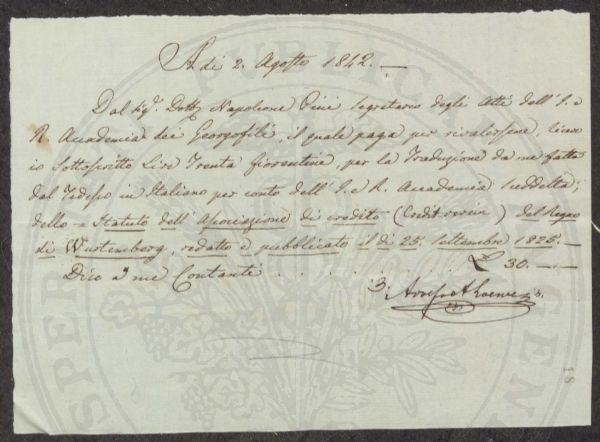 A dì 2. Agosto 1842. —
Dal Sig.r Dott. Napoleone Pini Segretario degli Atti dell' I. e
R. Accademia dei Georgofili, il quale paga per rivalersene, ricevo
io Sottoscritto Lire Trenta fiorentine, per la Traduzione da me fatta
dal Tedesco in Italiano per conto dell' I. e R. Accademia suddetta,
dello = Statuto dell' Associazione di credito (Creditverein) del Regno
di Wurtemberg, redatto e pubblicato il dì 25. Settembre 1825. —
Dico a me Contanti . . . . . . . £ 30. — . —
Adolfo
PUBLICA
PROSPERITATI
18